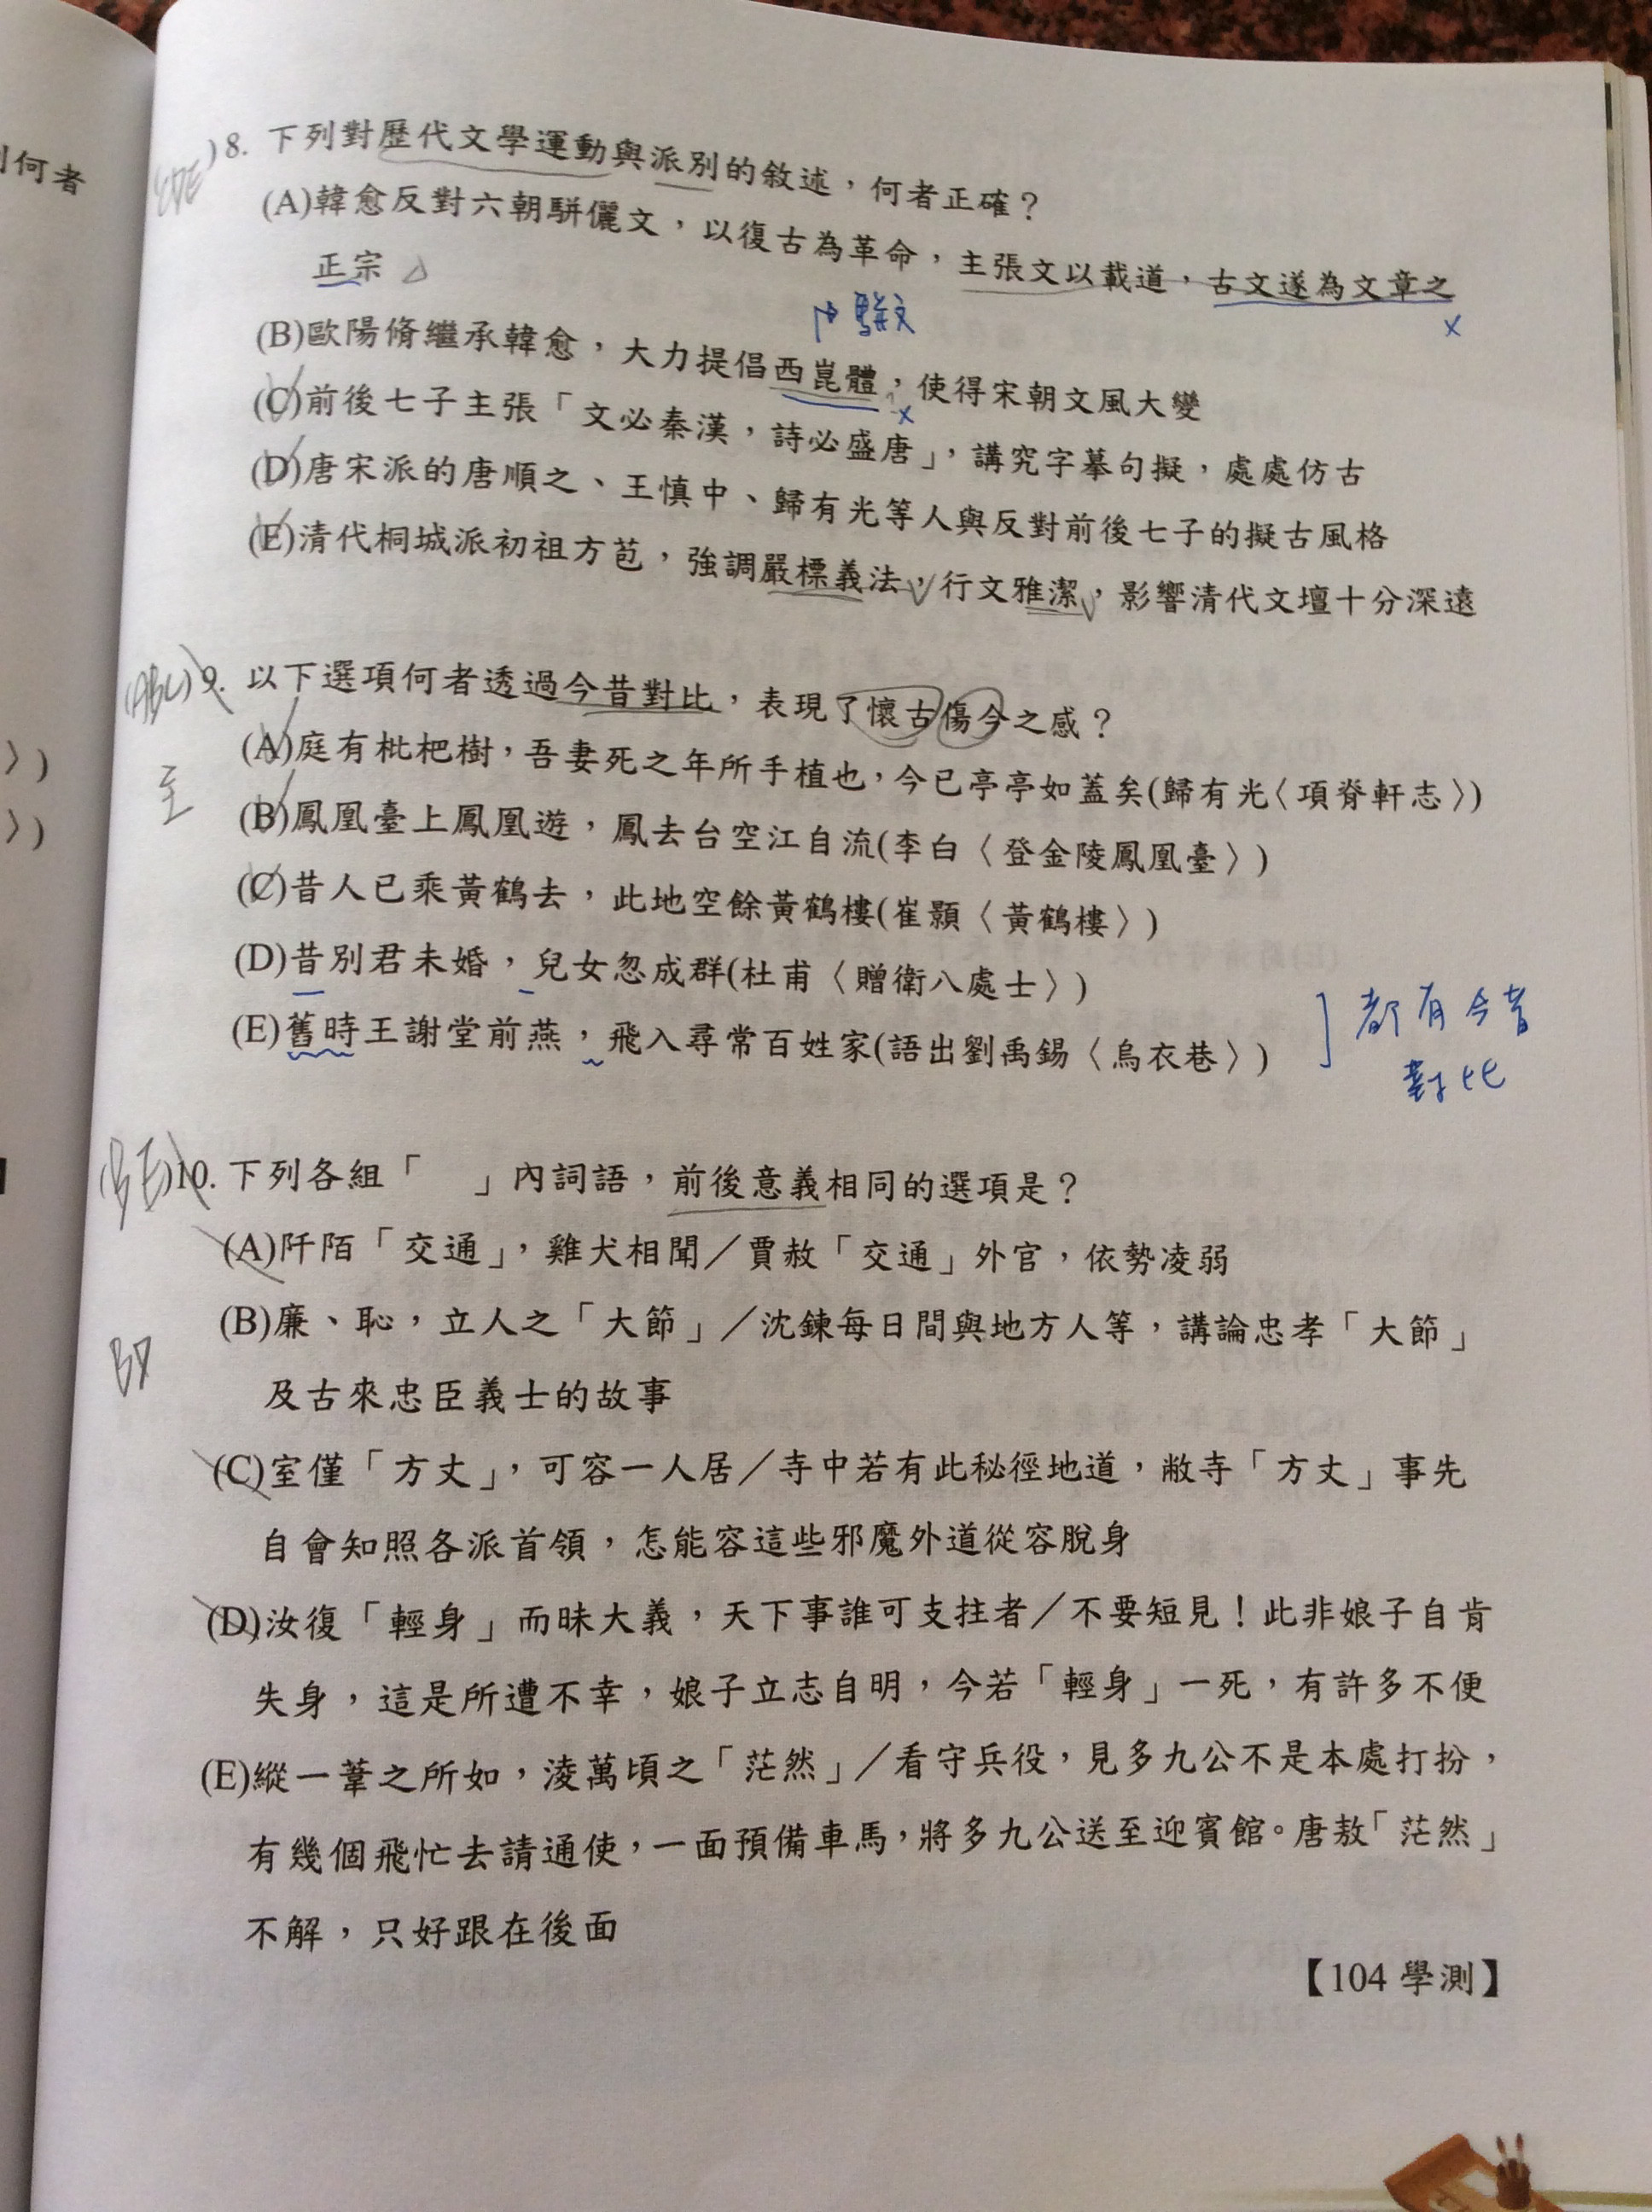 何者
CDE
)8. 下列對歷代文學運動與派別的敘述，何者正確？
(A)韓愈反對六朝駢儷文，以復古為革命，主張文以載道，古文遂為文章之
正宗
x
駢文
(B)歐陽脩繼承韓愈，大力提倡西崑體，使得宋朝文風大變
x
(C)前後七子主張「文必秦漢，詩必盛唐」，講究字摹句擬，處處仿古
(D)唐宋派的唐順之、王慎中、歸有光等人與反對前後七子的擬古風格
(E)清代桐城派初祖方苞，強調嚴標義法，行文雅潔，影響清代文壇十分深遠
(ABC)9. 以下選項何者透過今昔對比，表現了懷古傷今之感？
(A)庭有枇杷樹，吾妻死之年所手植也，今已亭亭如蓋矣(歸有光〈項脊軒志〉)
〉)
(B)鳳凰臺上鳳凰遊，鳳去台空江自流(李白〈登金陵鳳凰臺〉)
〉)
(C)昔人已乘黃鶴去，此地空餘黃鶴樓(崔顥〈黃鶴樓〉)
(D)昔別君未婚，兒女忽成群(杜甫〈贈衛八處士〉)
(E)舊時王謝堂前燕，飛入尋常百姓家(語出劉禹錫〈烏衣巷〉)
都有今昔
對比
(BE)10. 下列各組「　」內詞語，前後意義相同的選項是？
(A)阡陌「交通」，雞犬相聞／賈赦「交通」外官，依勢凌弱
(B)廉、恥，立人之「大節」／沈鍊每日間與地方人等，講論忠孝「大節」
及古來忠臣義士的故事
(C)室僅「方丈」，可容一人居／寺中若有此秘徑地道，敝寺「方丈」事先
自會知照各派首領，怎能容這些邪魔外道從容脫身
(D)汝復「輕身」而昧大義，天下事誰可支拄者／不要短見！此非娘子自肯
失身，這是所遭不幸，娘子立志自明，今若「輕身」一死，有許多不便
(E)縱一葦之所如，淩萬頃之「茫然」／看守兵役，見多九公不是本處打扮，
有幾個飛忙去請通使，一面預備車馬，將多九公送至迎賓館。唐敖「茫然」
不解，只好跟在後面
【104 學測】